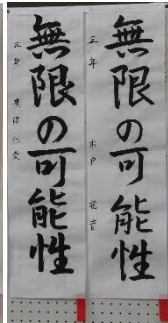 無限の可能性
三年
無限の可能性
三年